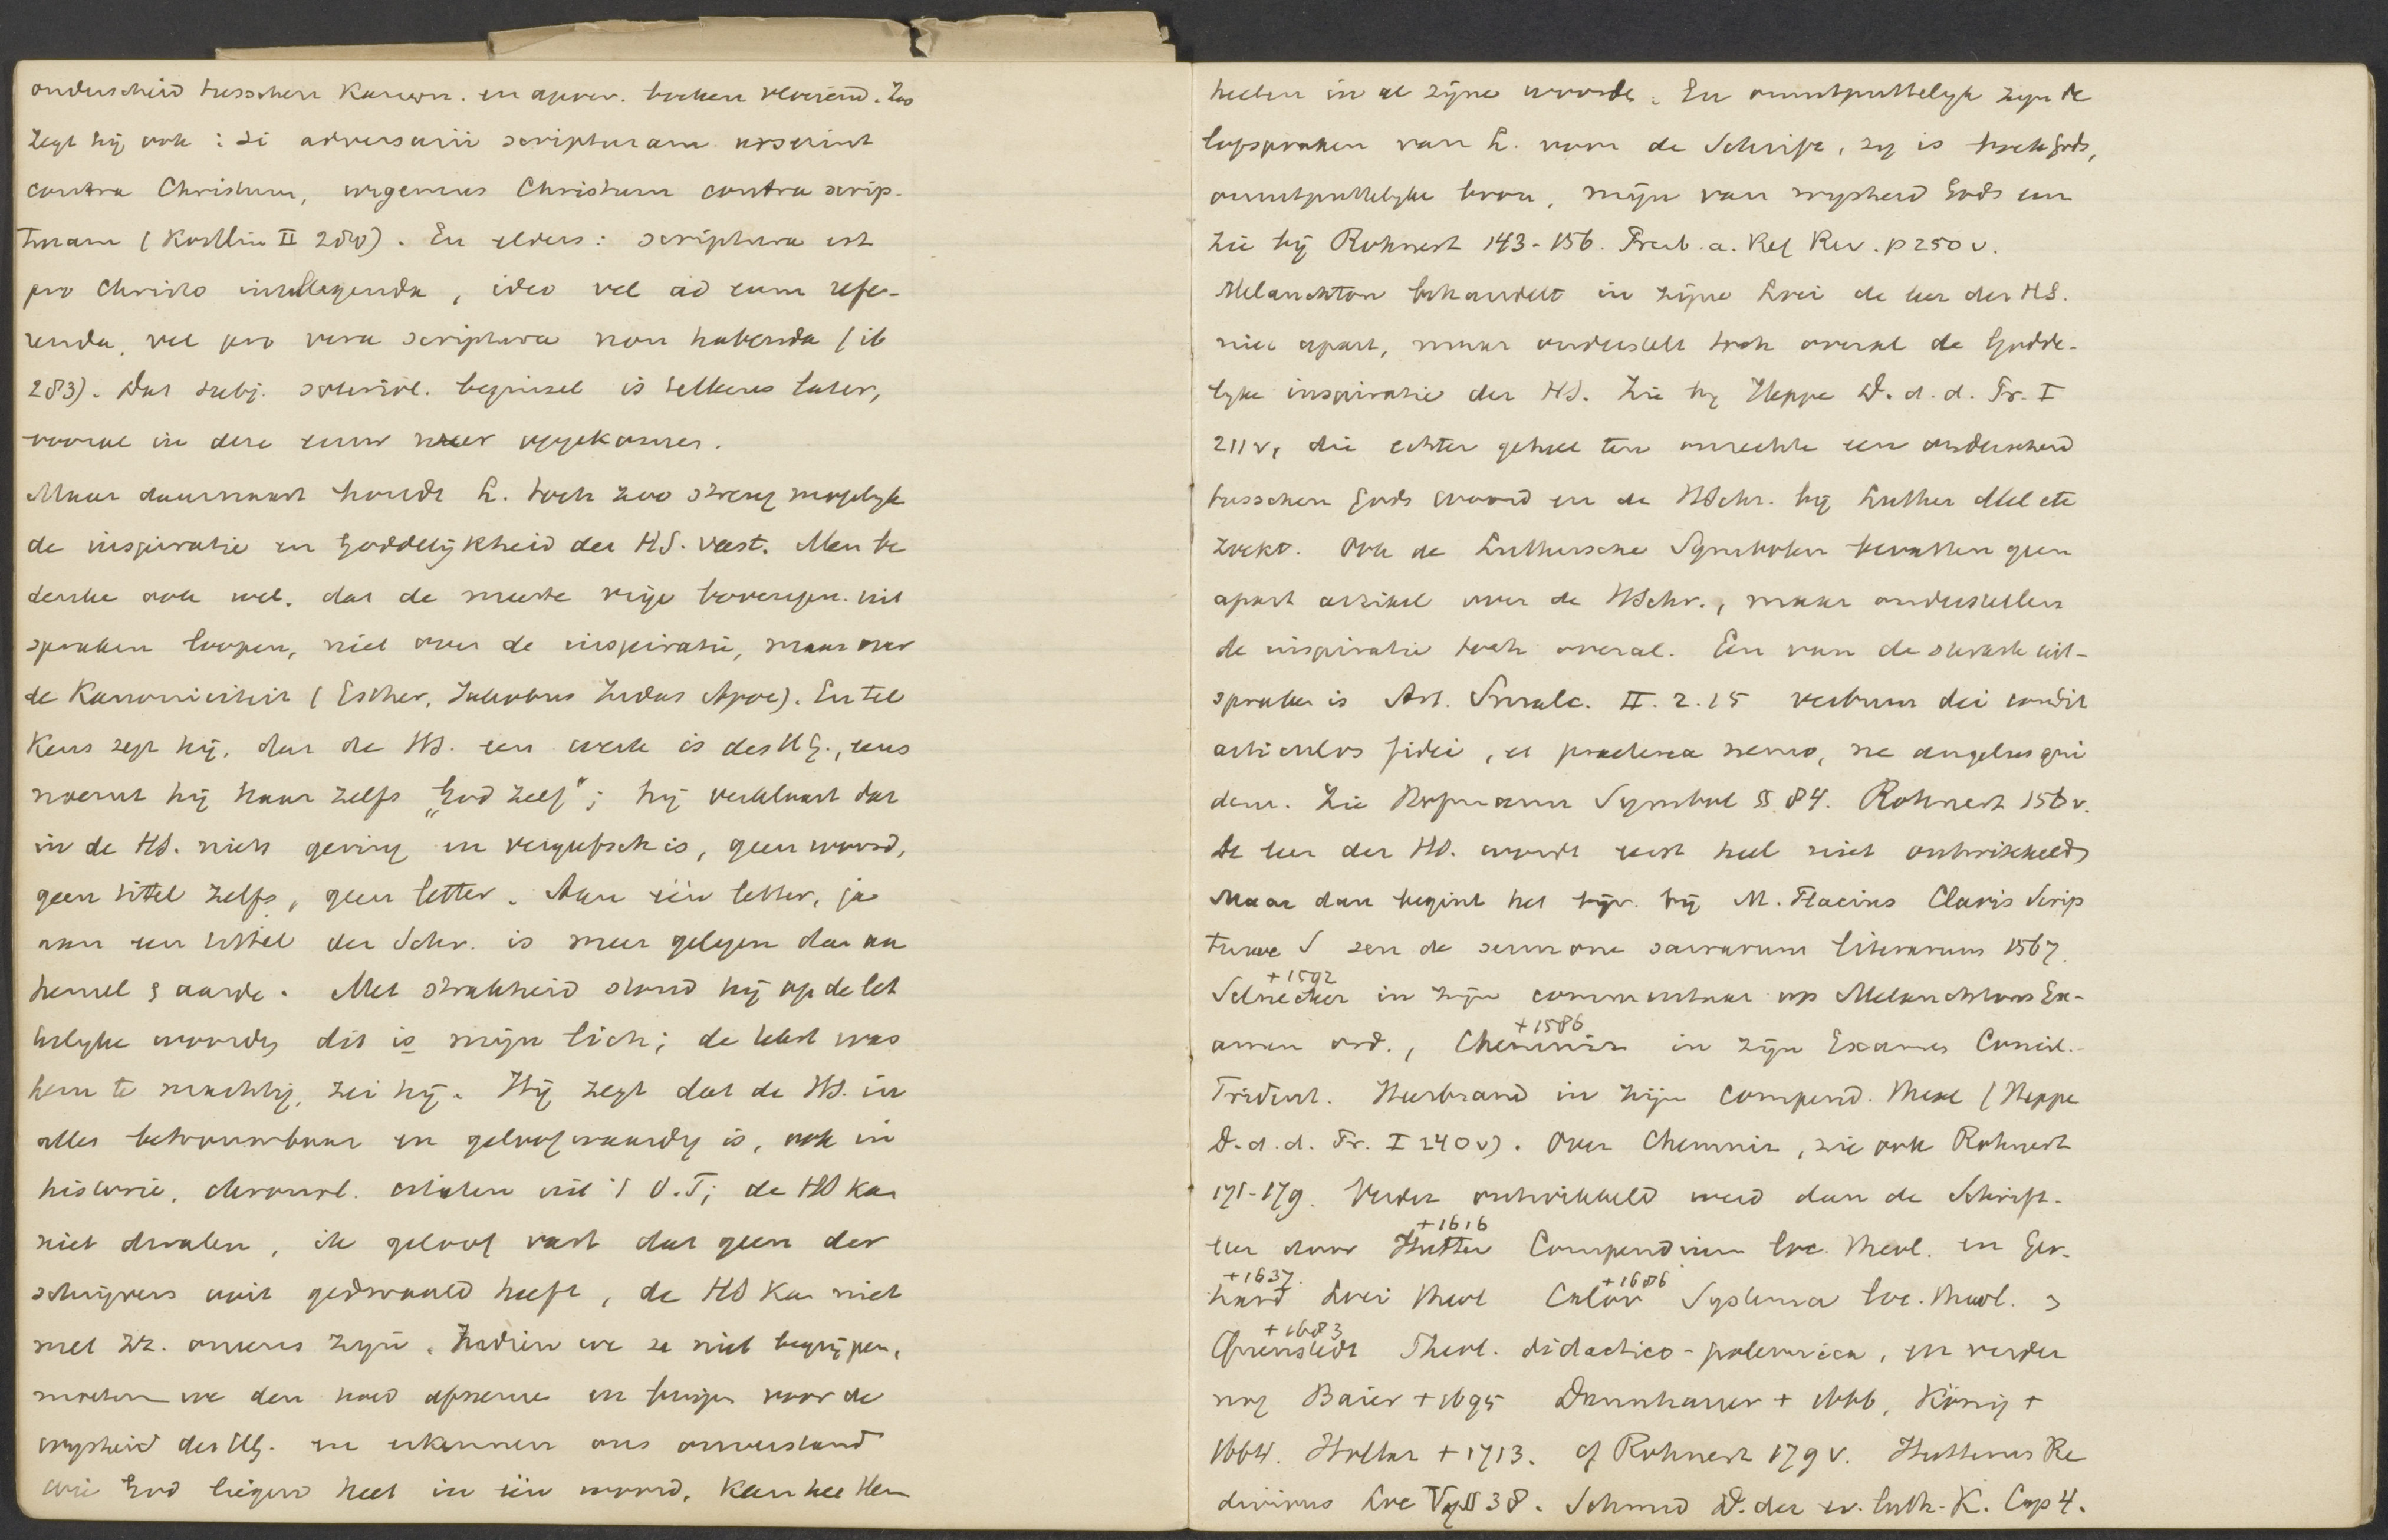 onderscheid tusschen Kanon. en apocr. boeken verviend. Zoo
zegt hij ook: Si adversarii scripturam urserint
contra Christum, urgemus Christum contra scrip-
turam (Köstlin II 280). En elders: scriptura est
pro Christo intellegenda, ideo vel ad eum refe-
renda, vel pro vera scriptura non habenda (ib
283). Dat subj. soteriol. beginsel is telkens later,
vooral in deze eeuw weer opgekomen.
Maar daarnaast houdt L. toch zoo streng mogelijk
de inspiratie en Goddelijkheid der HS. vast. Men be
denke ook wel, dat de meeste vrije bovengen. uit
spraken loopen, niet over de inspiratie, maar over
de Kanoniciteit (Esther, Jakobus Judas Apoc). En tel
kens zegt hij, dat de HS. een werk is des HG., eens
noemt hij haar zelfs „God zelf”; hij verklaart dat
in de HS. niets gering en vergeefsch is, geen woord,
geen tittel zelfs, geen letter. Aan één letter, ja
aan een tittel der Schr. is meer gelegen dan aan
hemel & aarde. Met strakheid stond hij op de let
terlijke woorden dit is mijn lich; de tekst was
hem te machtig, zei hij. Hij zegt dat de HS. in
alles betrouwbaar en geloofwaardig is, ook in
historie, chronol. uit 't O.T; de HS kan
niet dwalen, ik geloof vast dat geen der
schrijvers ooit gedwaald heeft, de HS kan niet
met zz. oneens zijn. Indien we ze niet begrijpen,
moeten we den hoed afnemen en buigen voor de
wijsheid des HG. en erkennen ons onverstand
wie God liegend heet in één woord, kan hee Hem
heeten in al zijne woorden. En onuitputtelijk zijn de
lofspraken van L. voor de Schrift, zij is boek Gods,
onuitputtelijke bron, mijn van wijsheid Gods enz
Zie bij Rohnert 143-156. Presb. a. Ref Rev. p 250 v.
Melanchton behandelt in zijne Loci de leer der HS.
niet apart, maar onderstelt toch overal de Godde-
lijke inspiratie der HS. Zie bij Heppe D. d. d. Pr. I
211 v, die echter geheel ten onrechte een onderscheid
tusschen Gods woord en de HSchr. bij Luther Mel etc
zoekt. Ook de Luthersche Symbolen bevatten geen
apart artikel over de HSchr., maar onderstellen
de inspiratie toch overal. Een van de sterkste uit-
spraken is Art. Smalc. II. 2. 15 verbum dei condit
articulos fidei, et praeterea nemo, ne angelus qui
dem. Zie Hofmann Symbol §§ 84. Rohnert 156 v.
De leer der HS. wordt eerst heel niet ontwikkeld
Maar dan begint het bijv. bij M. Flacius Clavis Scrip
turae S seu de sermone sacrarum literarum 1567.
+1592
Selnecker in zijn commentaar op Melanchtons Ex-
amen ord., Chemniz in zijn Examen Concil.
+1586
Trident. Heerbrand in zijn Compend. theol (Heppe
D. d. d. Pr. I 240 v). Over Chemniz, zie ook Rohnert
171-179. Verder ontwikkeld werd dan de Schrift-
+1616
leer door Hutter Compendium loc. theol. en Ger-
+1637. +1686
hard Loci theol Calov Systema loc. theol. &
+1683
Quenstedt Theol. didactico-polemica, en verder
nog Baier +1695 Dannhauer + 1666, König +
1664. Hollaz +1713. cf Rohnert 179 v. Hutterus Re
divivus Loc §§ 38. Schmid D. der ev. luth. K. Cap 4.